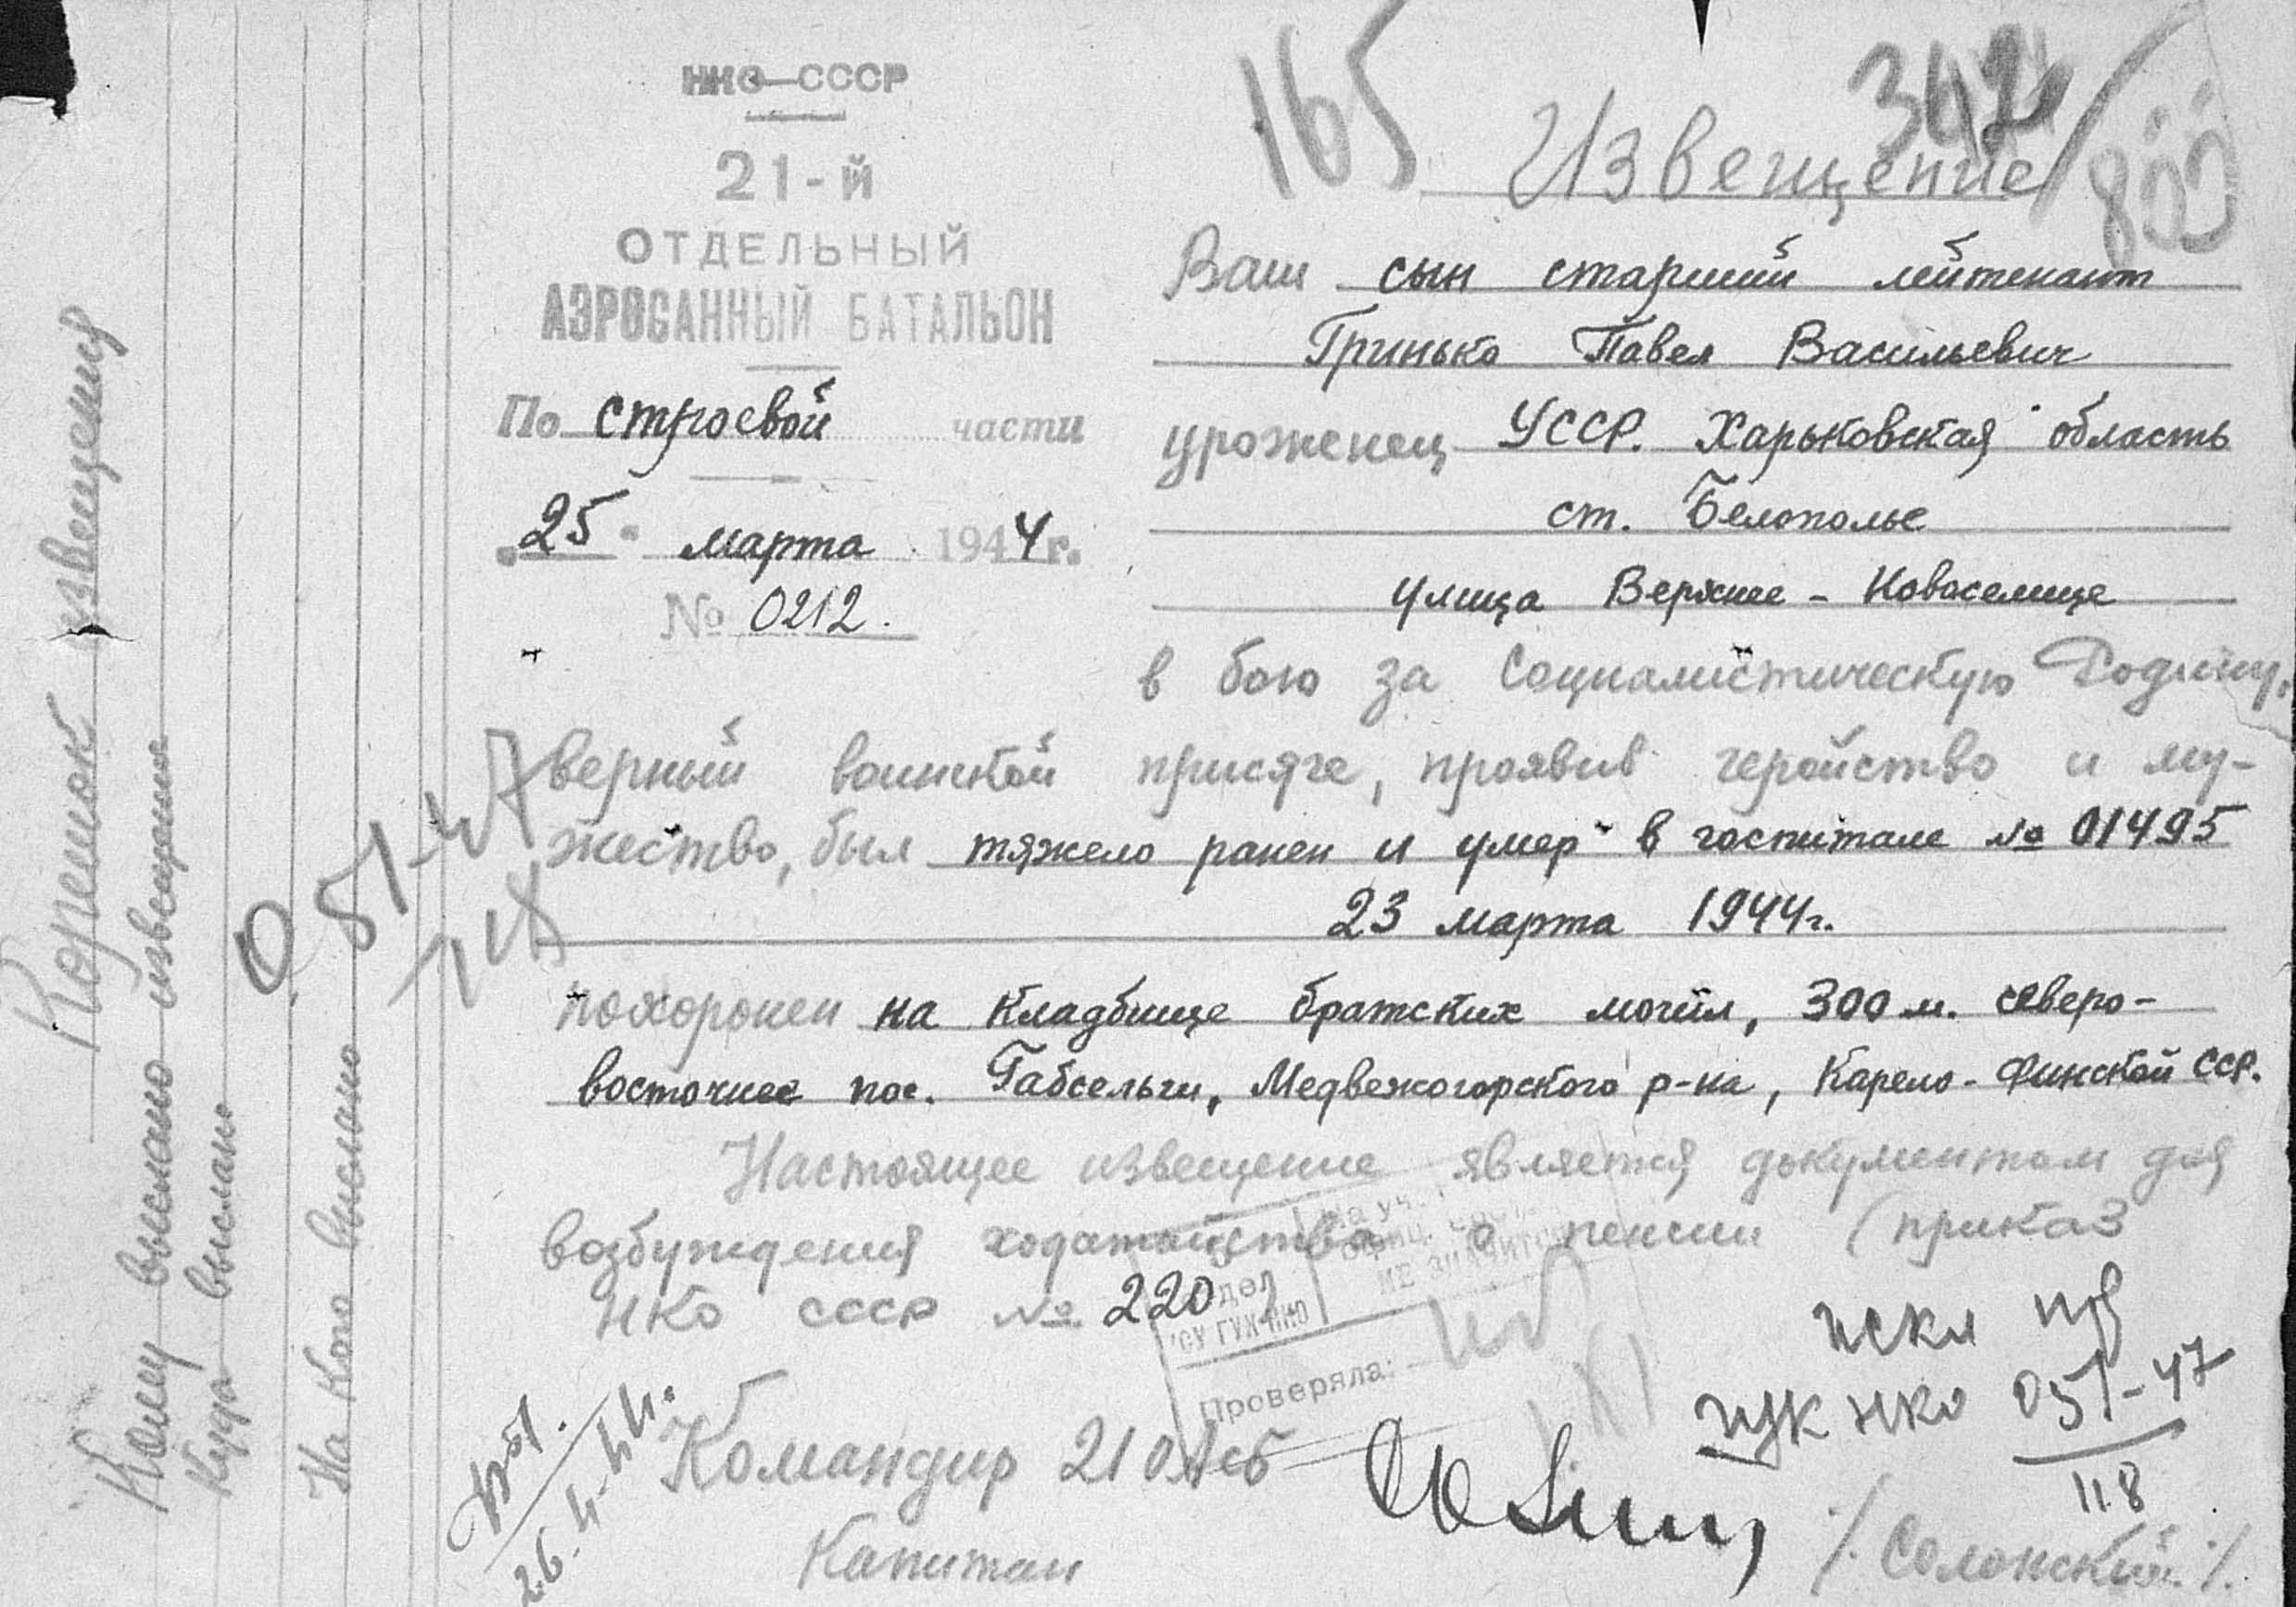 НКО-СССР
21-й
ОТДЕЛЬНЫЙ
АЭРОСАННЫЙ БАТАЛЬОН
По строевой части
"25" марта 1944 г.
№ 0212.
165
342
802
Извещение
Ваш сын старший лейтенант
Гринько Павел Васильевич
уроженец УССР. Харьковская область
ст. Белополье
улица Верхнее - Новоселище
в бою за Социалистическую Родину,
верный воинской присяге, проявив геройство и му-
жество, был тяжело ранен и умер в госпитале № 01495
23 марта 1944г.
похоронен на кладбище братских могил, 300 м. северо-
восточнее пос. Габсельги, Медвежогорского р-на, Карело-Финской ССР.
Настоящее извещение является документом для
возбуждения ходатайства о пенсии (приказ
НКО СССР № 220).
Командир 21 ОАсб
Капитан
/. Солонский ./.
искл
гук нко 051-47
118
Проверяла:
НЕ ЗНАЧИТСЯ
26-4-44.
Корешок извещения
Кому выслано извещение
Куда выслано
На кого выслано